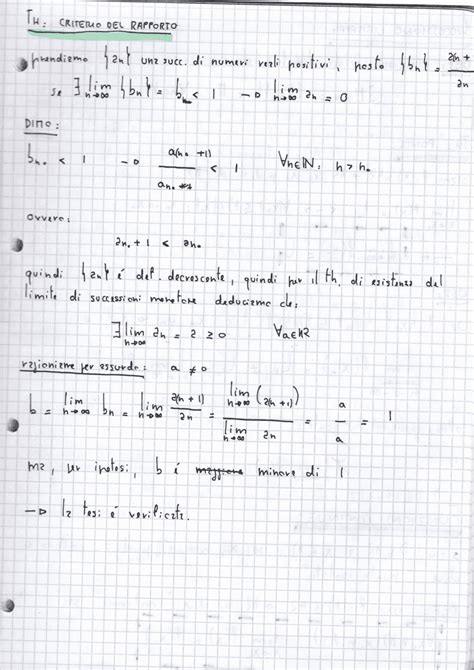 TH: CRITERIO DEL RAPPORTO
prendiamo {an} una succ. di numeri reali positivi, posto {bn} = a(n+
an
se ∃ lim n→∞ {bn} = b < 1 → lim n→∞ an = 0
DIMO:
bn₀ < 1 → a(n₀ +1) / an₀ < 1 ∀n∈ℕ: n > n₀
ovvero:
an₀+1 < an₀
quindi {an} é def. decrescente, quindi per il th. di esistenza del
limite di successioni monotone deduciamo che:
∃ lim n→∞ an = a ≥ 0 ∀a∈ℝ
ragioniamo per assurdo: a ≠ 0
b = lim n→∞ bn = lim n→∞ a(n+1) / an = lim n→∞ (a(n+1)) / lim n→∞ an = a / a = 1
ma, per ipotesi, b é maggiore minore di 1
→ la tesi é verificata.